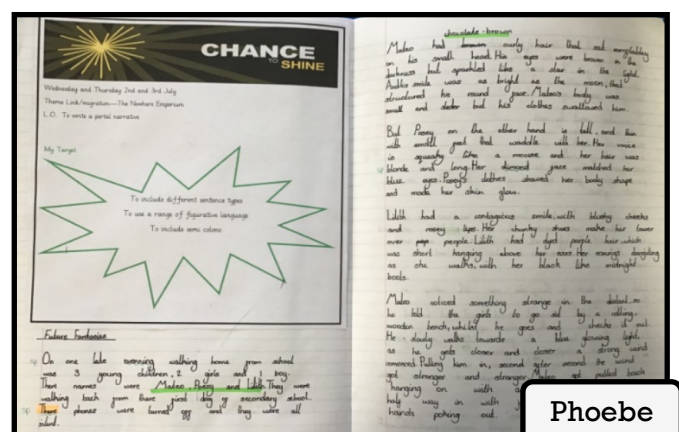 CHANCE
TO SHINE
Wednesday and Thursday 2nd and 3rd July
Theme Link/inspiration—The Nowhere Emporium
L.O. To write a portal narrative
My Target
To include different sentence types
To use a range of figurative language
To include semi colons
Future Fantasise
On one late evening walking home from school
was 3 young children, 2 girls and 1 boy.
There names were Mateo, Poesy and Lilith. They were
walking back from there first day of secondary school.
There phones were turned off and they were all
silent.
chocolate-brown
Mateo had brown curly hair that sat
on his small head. His eyes were brown in the
darkness but sparkled like a star in the light.
smile was as bright as the moon, that
structured his round face. Mateo's body was
small and but his clothes swallowed him.
But Poesy on the other hand is tall, and thin
with small feet that waddle with her. Her voice
is squeaky like a mouse and her hair was
blonde and long. Her face matched her
blue eyes. Poesy's clothes showed her body shape
and made her skin glow.
Lilith had a contagious smile with blushy cheeks
and rosey lips. Her chunky shoes make her tower
over people. Lilith had dyed purple hair which
was short hanging above her ears. Her earrings dangling
as she walks, with her black like midnight
boots.
Mateo noticed something strange in the distant so
he told the girls to go sit by a
wooden bench, whilst he goes and checks it out.
He slowly walks towards a blue glowing light.
as he gets closer and closer a strong wind
Pulling him in, second after second the wind
got stronger and stronger. Mateo got pulled back
hanging on with a
half way in with
hands poking out.
Phoebe